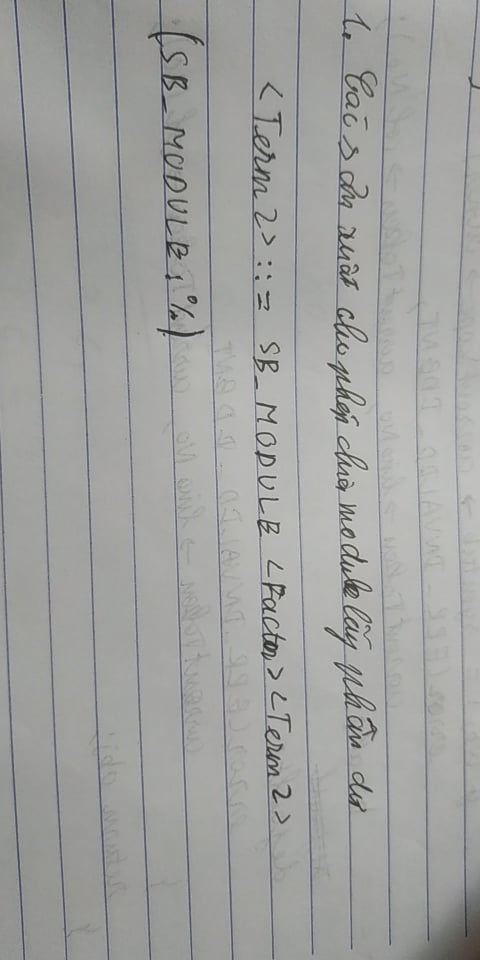 1. Các sản xuất cho phép chia module lấy phần dư
<Term2> ::= SB_MODULE <Factor> <Term2>
(SB_MODULE: %)